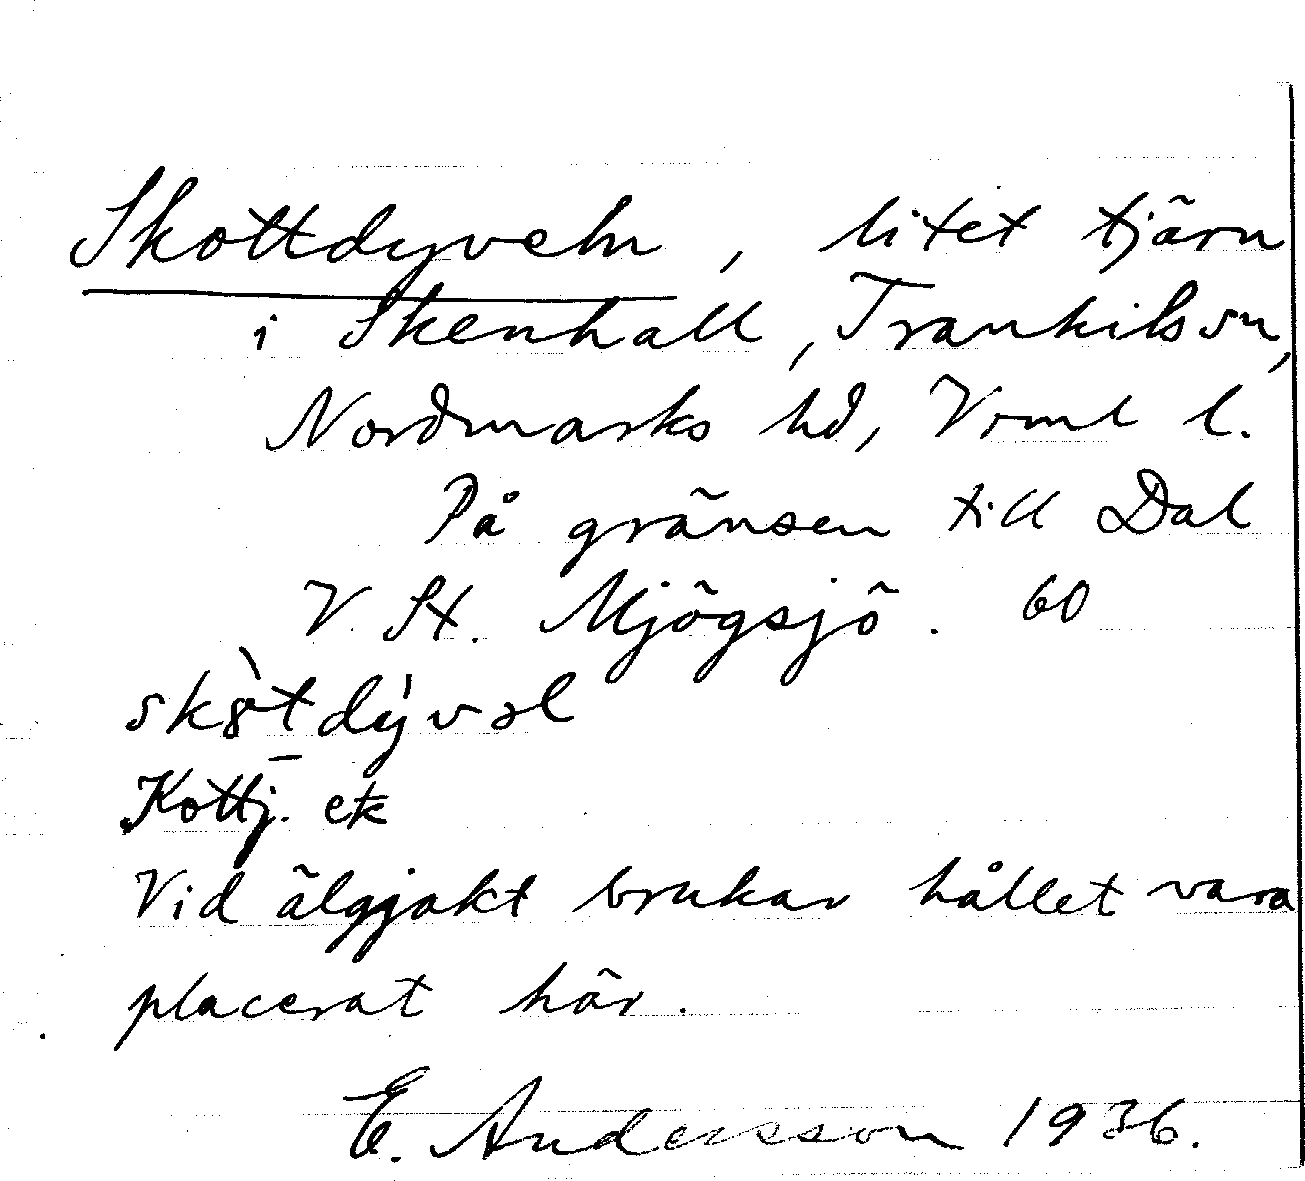 Skottdyveln, litet tjärn
i Skenhall, Trankilsn,
Nordmarks hd, Vrml l.
På gränsen till Dal
V. St. Mjögsjö. 60
Kottj. ek
Vid älgjakt brukar hållet vara
placerat här.
E. Andersson 1936.